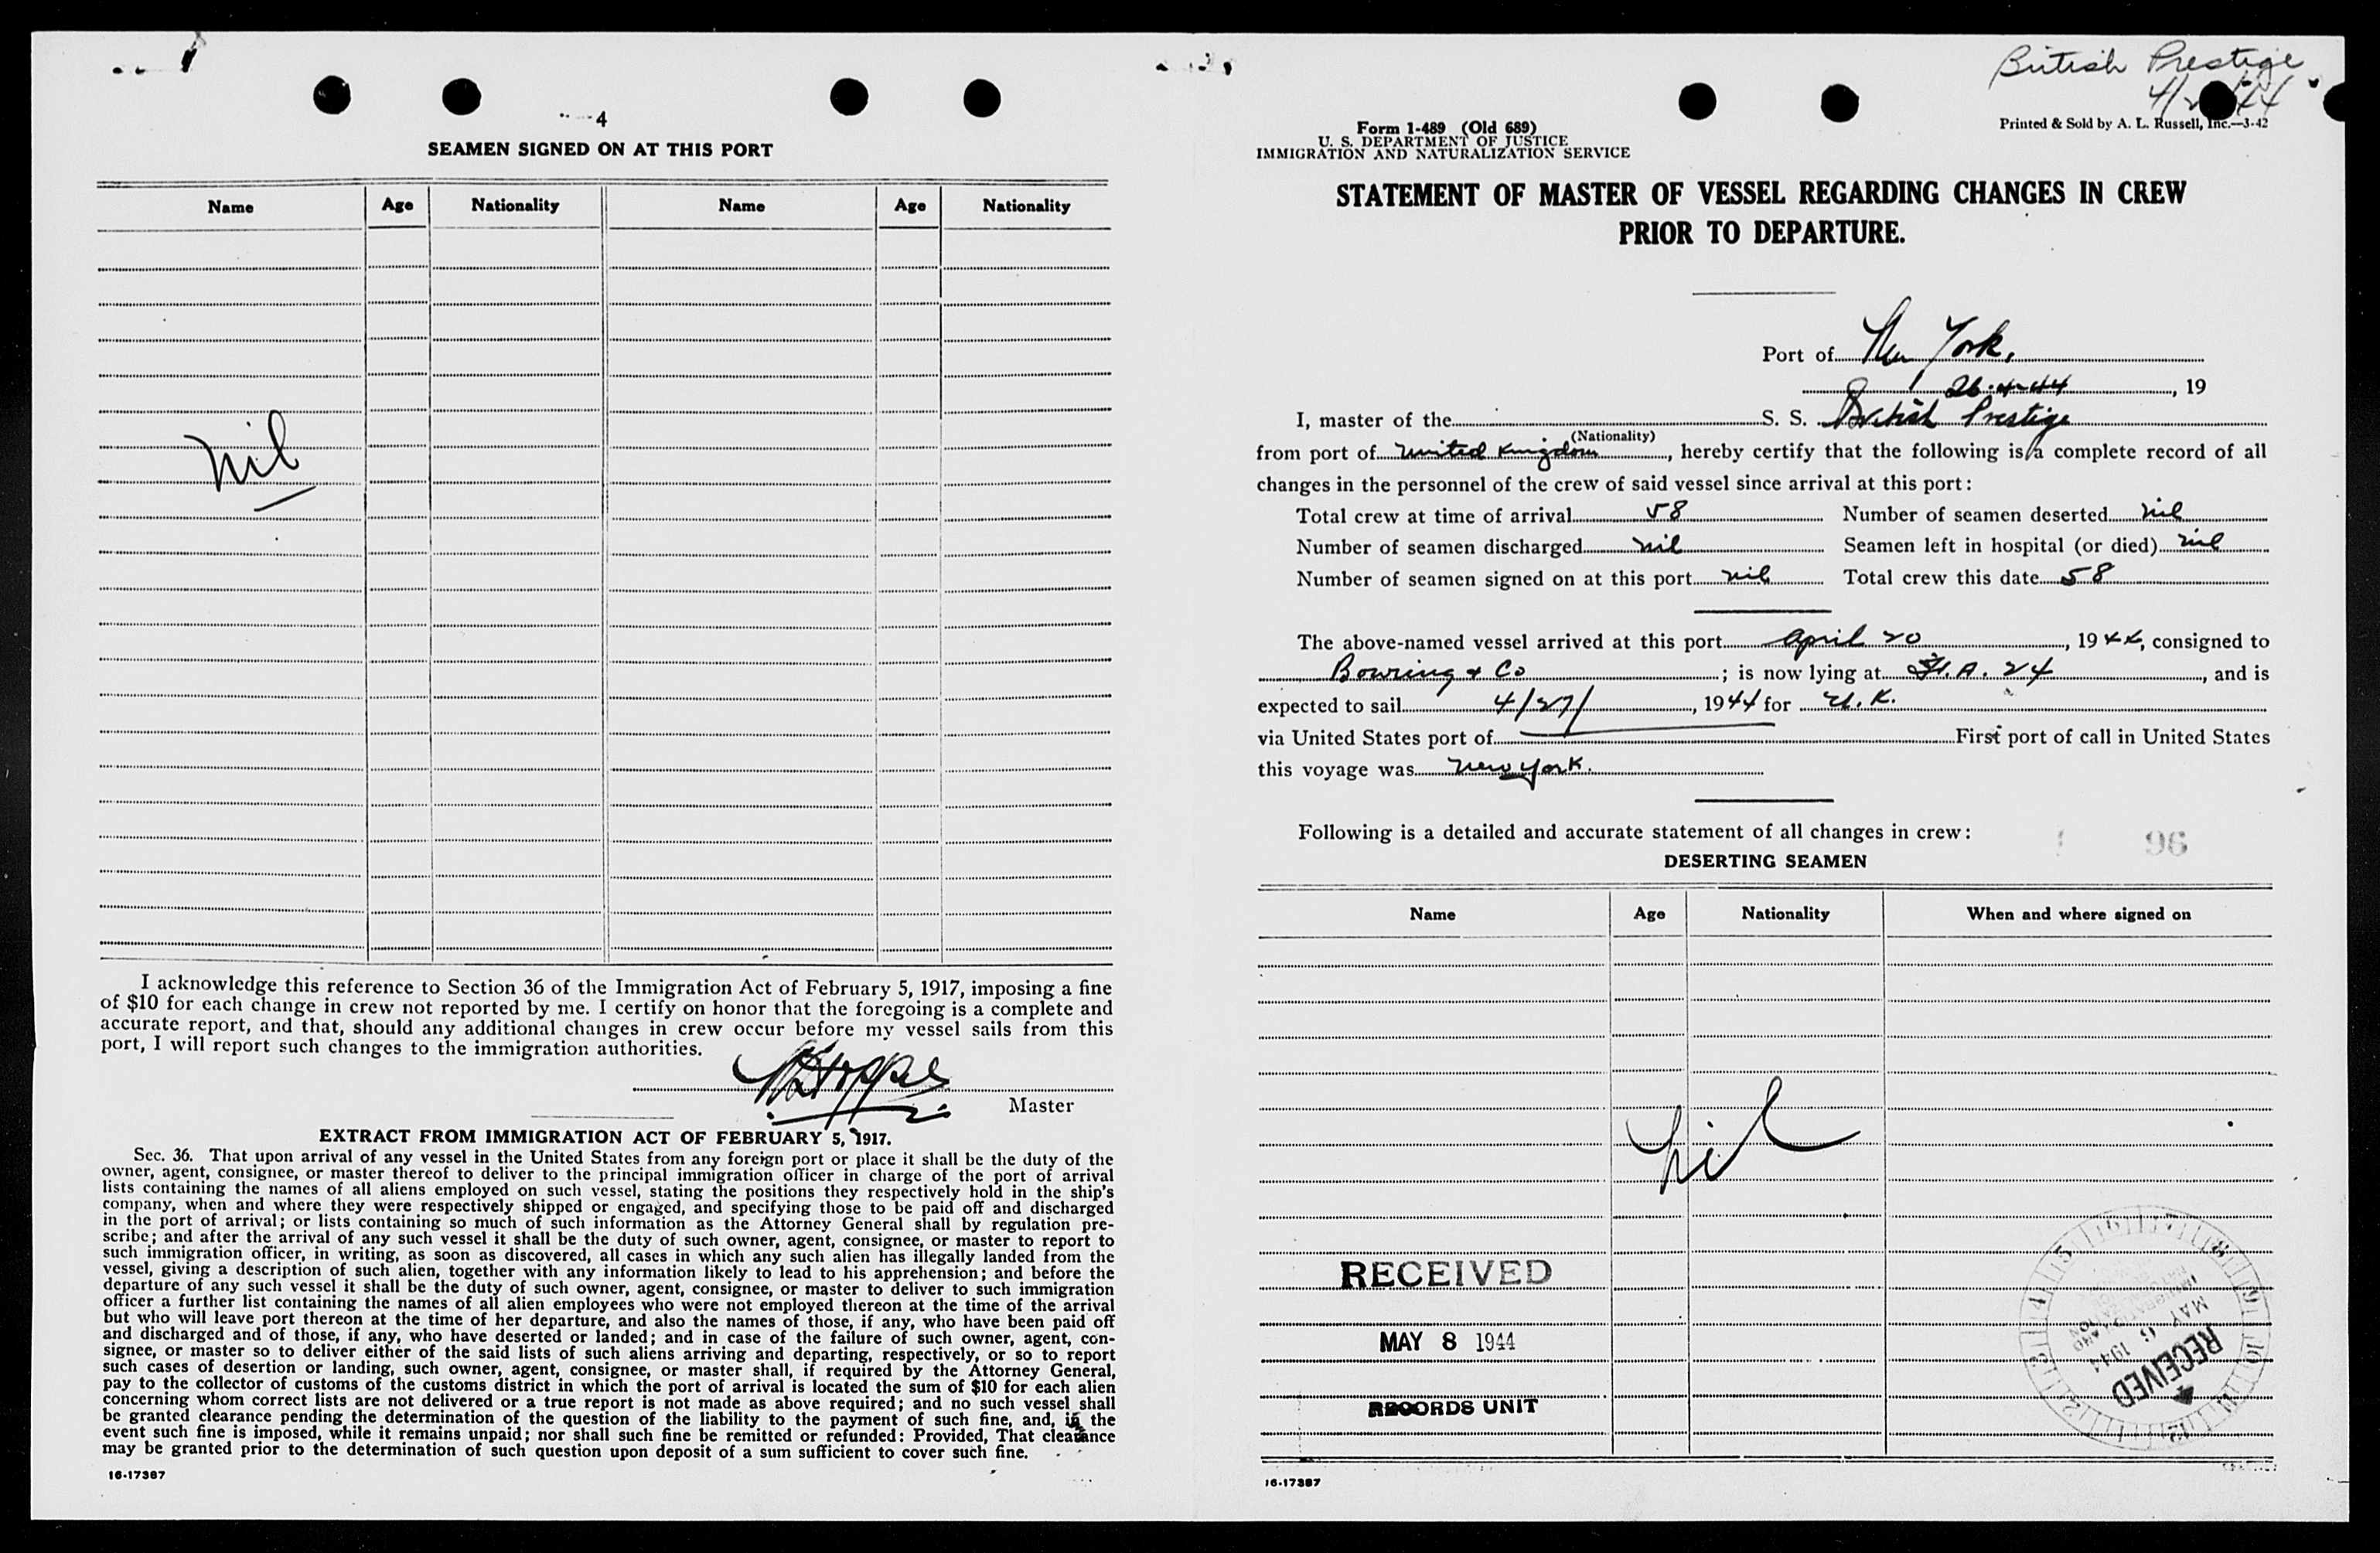 4
SEAMEN SIGNED ON AT THIS PORT
Name Age Nationality Name Age Nationality
nil
I acknowledge this reference to Section 36 of the Immigration Act of February 5, 1917, imposing a fine
of $10 for each change in crew not reported by me. I certify on honor that the foregoing is a complete and
accurate report, and that, should any additional changes in crew occur before my vessel sails from this
port, I will report such changes to the immigration authorities.
Master
EXTRACT FROM IMMIGRATION ACT OF FEBRUARY 5, 1917.
Sec. 36. That upon arrival of any vessel in the United States from any foreign port or place it shall be the duty of the
owner, agent, consignee, or master thereof to deliver to the principal immigration officer in charge of the port of arrival
lists containing the names of all aliens employed on such vessel, stating the positions they respectively hold in the ship's
company, when and where they were respectively shipped or engaged, and specifying those to be paid off and discharged
in the port of arrival; or lists containing so much of such information as the Attorney General shall by regulation pre-
scribe; and after the arrival of any such vessel it shall be the duty of such owner, agent, consignee, or master to report to
such immigration officer, in writing, as soon as discovered, all cases in which any such alien has illegally landed from the
vessel, giving a description of such alien, together with any information likely to lead to his apprehension; and before the
departure of any such vessel it shall be the duty of such owner, agent, consignee, or master to deliver to such immigration
officer a further list containing the names of all alien employees who were not employed thereon at the time of the arrival
but who will leave port thereon at the time of her departure, and also the names of those, if any, who have been paid off
and discharged and of those, if any, who have deserted or landed; and in case of the failure of such owner, agent, con-
signee, or master so to deliver either of the said lists of such aliens arriving and departing, respectively, or so to report
such cases of desertion or landing, such owner, agent, consignee, or master shall, if required by the Attorney General,
pay to the collector of customs of the customs district in which the port of arrival is located the sum of $10 for each alien
concerning whom correct lists are not delivered or a true report is not made as above required; and no such vessel shall
be granted clearance pending the determination of the question of the liability to the payment of such fine, and, in the
event such fine is imposed, while it remains unpaid; nor shall such fine be remitted or refunded: Provided, That clearance
may be granted prior to the determination of such question upon deposit of a sum sufficient to cover such fine.
16-17387
British Prestige
Form 1-489 (Old 689)
U. S. DEPARTMENT OF JUSTICE
IMMIGRATION AND NATURALIZATION SERVICE
Printed & Sold by A. L. Russell, Inc.—3-42
STATEMENT OF MASTER OF VESSEL REGARDING CHANGES IN CREW
PRIOR TO DEPARTURE.
Port of New York,
26-4-44, 19
I, master of the S. S. British Prestige
(Nationality)
from port of United Kingdom, hereby certify that the following is a complete record of all
changes in the personnel of the crew of said vessel since arrival at this port:
Total crew at time of arrival 58 Number of seamen deserted nil
Number of seamen discharged nil Seamen left in hospital (or died) nil
Number of seamen signed on at this port nil Total crew this date 58
The above-named vessel arrived at this port April 20, 1944, consigned to
Bowring & Co; is now lying at 24, and is
expected to sail 4/27/, 1944 for U.K.
via United States port of First port of call in United States
this voyage was New York.
Following is a detailed and accurate statement of all changes in crew:
96
DESERTING SEAMEN
Name Age Nationality When and where signed on
nil
RECEIVED
MAY 8 1944
RECORDS UNIT
RECEIVED
MAY 6 1944
16-17387